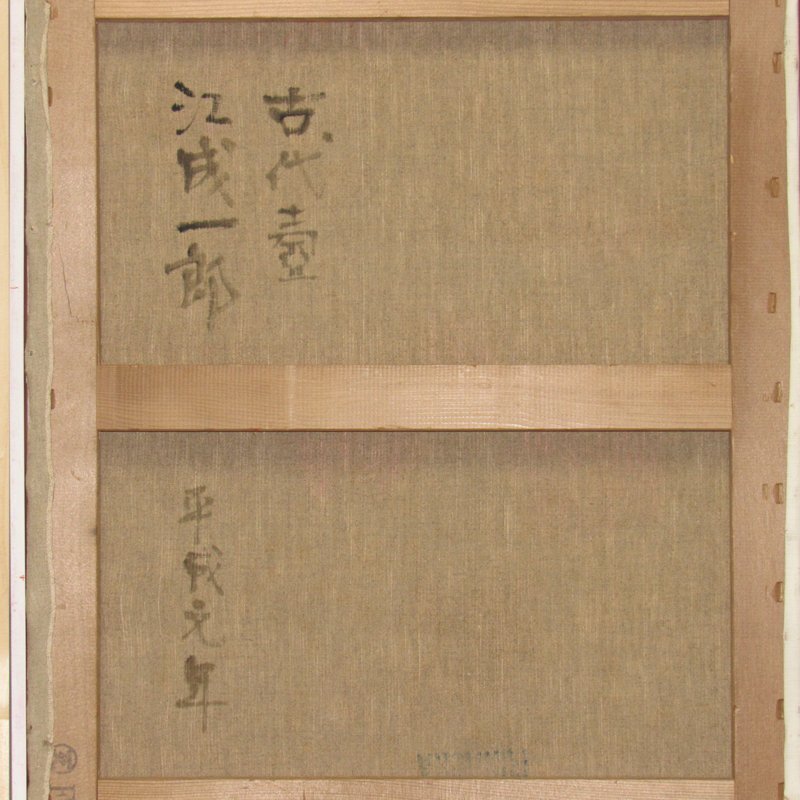 古代壺
江成一郎
平成元年